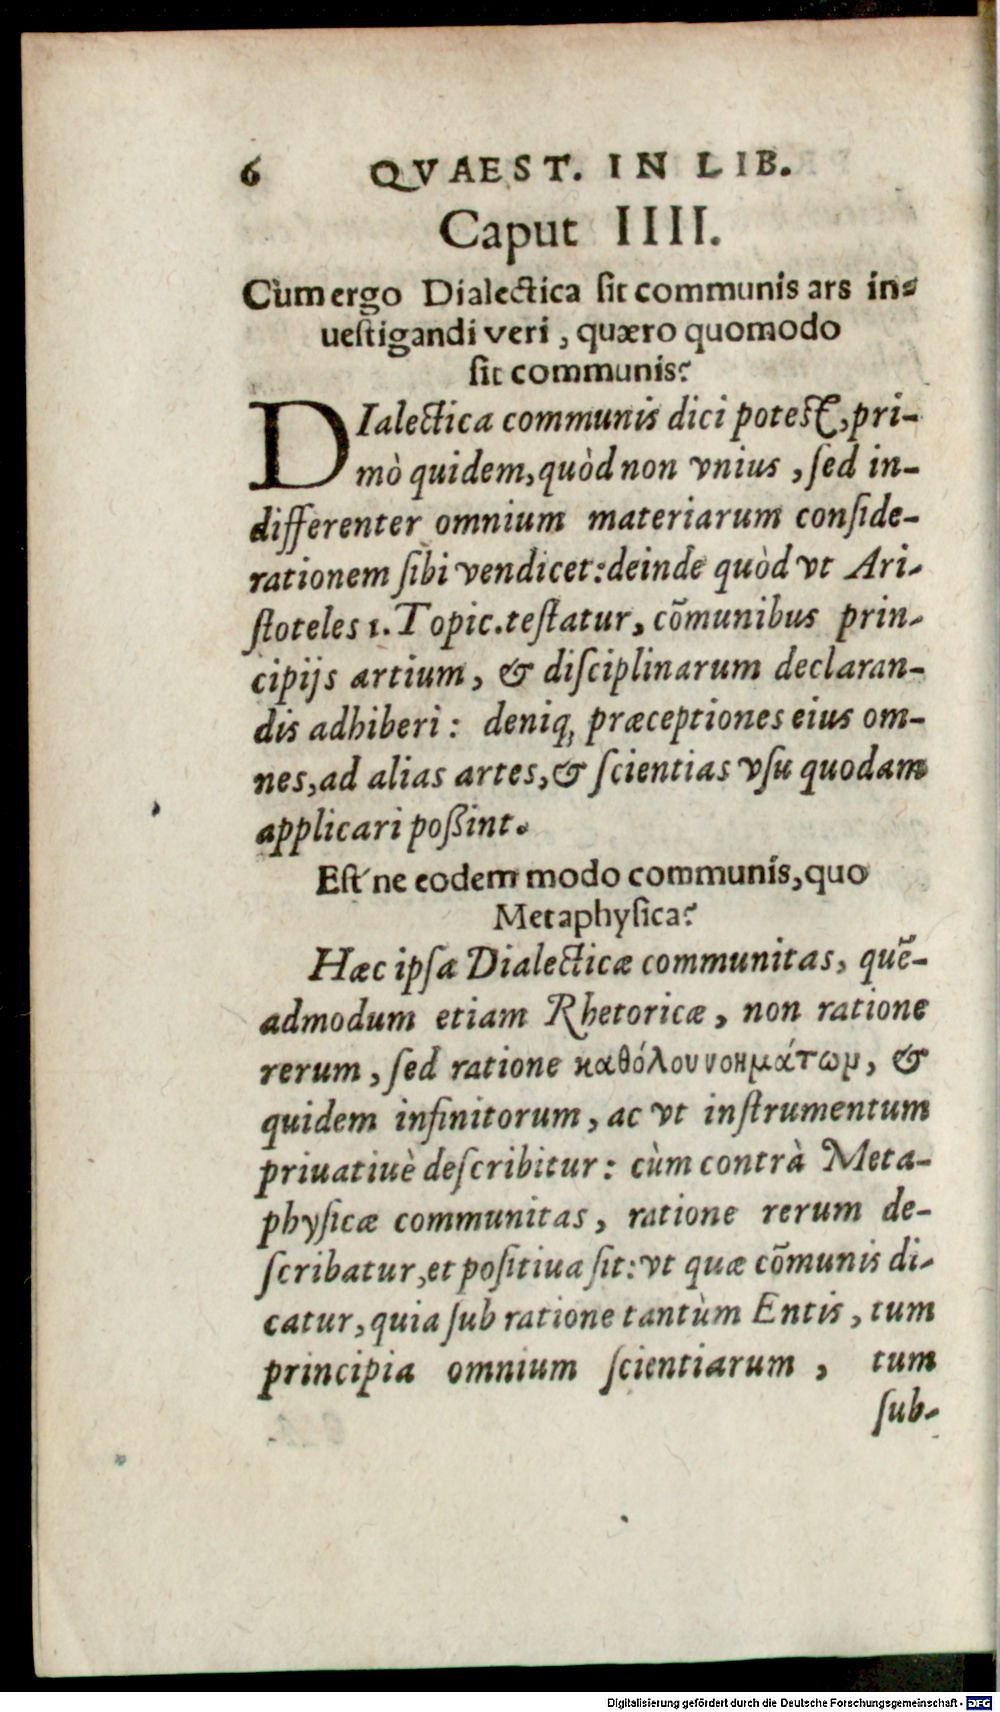 6 QVAEST. IN LIB.
Caput IIII.
Cùm ergo Dialectica ſit communis ars in⸗
ueſtigandi veri, quæro quomodo
ſit communis?
DIalectica communis dici poteſt, pri-
mò quidem, quòd non vnius, ſed in-
differenter omnium materiarum conſide-
rationem ſibi vendicet: deinde quòd vt Ari-
ſtoteles 1. Topic. teſtatur, cõmunibus prin-
cipijs artium, & diſciplinarum declaran-
dis adhiberi: deniq; præceptiones eius om-
nes, ad alias artes, & ſcientias vſu quodam
applicari poßint.
Eſt ne eodem modo communis, quo
Metaphyſica?
Hæc ipſa Dialecticæ communitas, quẽ-
admodum etiam Rhetoricæ, non ratione
rerum, ſed ratione καθόλου νοημάτωμ, &
quidem infinitorum, ac vt inſtrumentum
priuatiuè deſcribitur: cùm contrà Meta-
phyſicæ communitas, ratione rerum de-
ſcribatur, et poſitiua ſit: vt quæ cõmunis di-
catur, quia ſub ratione tantùm Entis, tum
principia omnium ſcientiarum, tum
ſub-
Digitalisierung gefördert durch die Deutsche Forschungsgemeinschaft - DFG